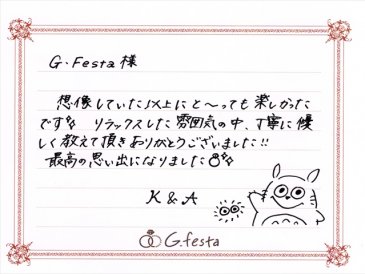 G・Festa 様
想像していた以上にと〜っても楽しかった
です♪ リラックスした雰囲気の中、丁寧に優
しく教えて頂きありがとうございました!!
最高の思い出になりました
K & A
G.festa